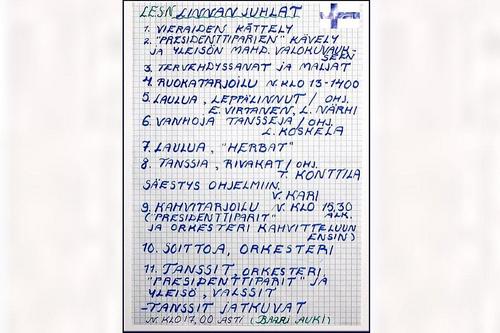 LESN LINNAN JUHLAT
1. VIERAIDEN KÄTTELY
2. "PRESIDENTTIPARIEN" KÄVELY
JA YLEISÖN MAHD. VALOKUVAUK-
SEEN
3. TERVEHDYSSANAT JA MALJAT
4. RUOKATARJOILU N. KLO 13-1400
5. LAULUA, LEPPÄLINNUT / OHJ.
E. VIRTANEN, L. NÄRHI
6. VANHOJA TANSSEJA / OHJ.
L. KOSKELA
7. LAULUA, "HERBAT"
8. TANSSIA, RIVAKAT / OHJ.
T. KONTTILA
SÄESTYS OHJELMIIN,
V. KARI
9. KAHVITARJOILU N. KLO 15,30
("PRESIDENTTIPARIT" ALK.
JA ORKESTERI KAHVITTELUUN
ENSIN)
10. SOITTOA, ORKESTERI
11. TANSSIT, ORKESTERI,
"PRESIDENTTIPARIT" JA
YLEISÖ, VALSSIT
-TANSSIT JATKUVAT
N. KLO 17,00 ASTI. (BAARI AUKI)